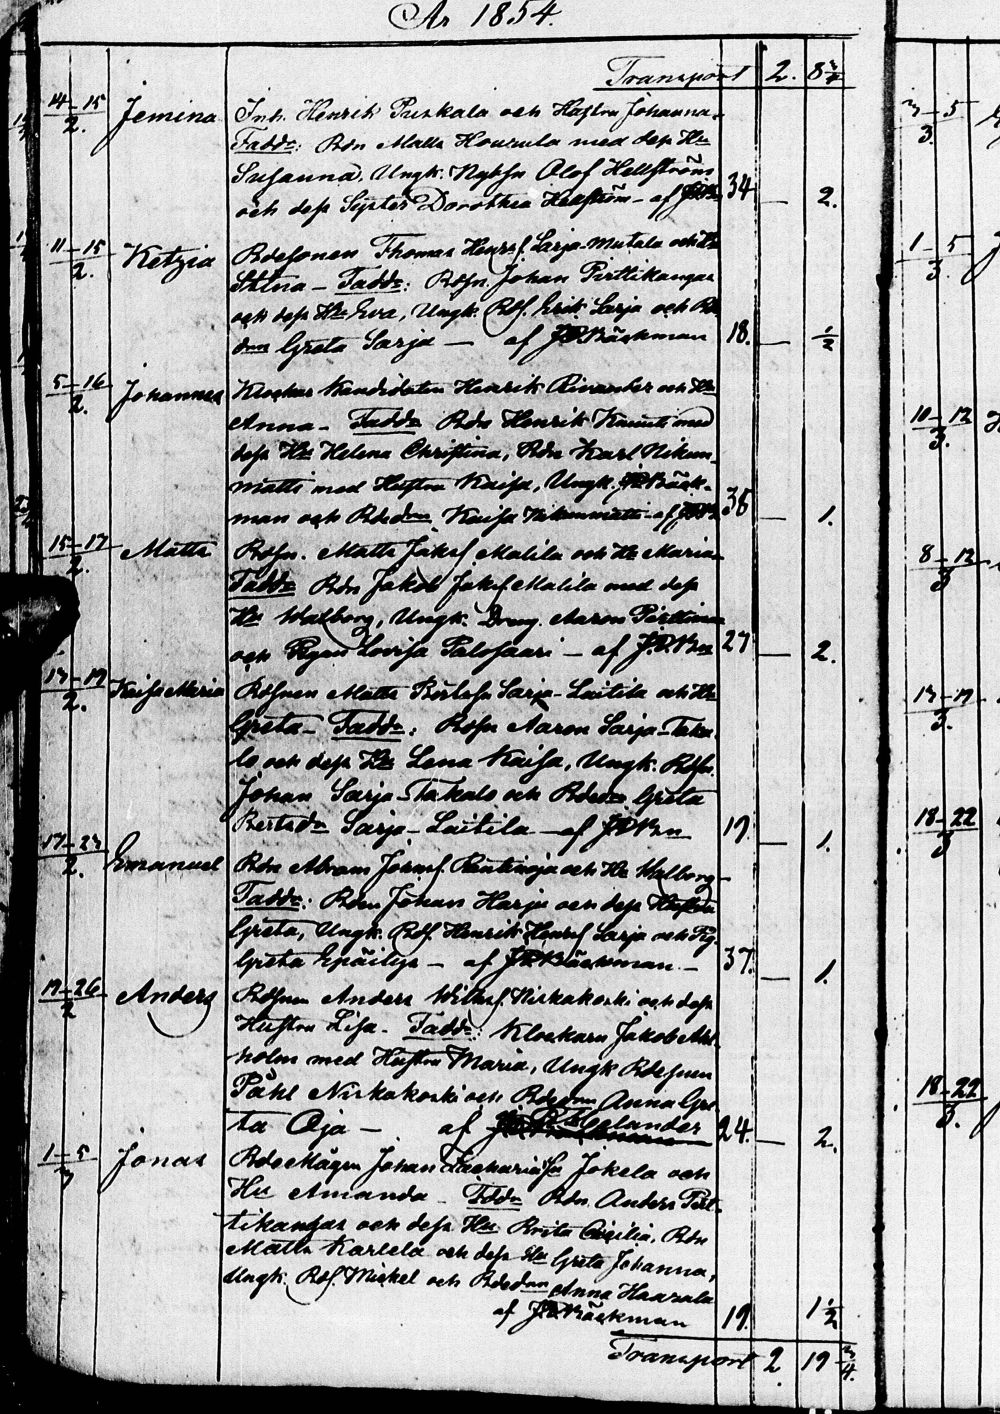 År 1854.
Transport 2. 8 3/4
14-15/2. Jemina Inh. Henrik Puskala och Hustru Johanna.
Faddr: Bdn Matts Houmula med dess Hu
Susanna, Ungk. Nybyn Olof Hellström
och dess Syster Dorothea Hellström - af 34 — 2.
11-15/2. Ketzia Bdesonen Thomas Henrsf. Sarja-Mutala och Hu
Stina - Faddr: Bdsn. Johan Perttikangas
och dess Hu Eva, Ungk. Bds. Erik Sarja och Bde
dren Greta Sarja — af J.P. Bäckman 18. — 1/2
5-16/2. Johannes Klockar Kandidaten Henrik Rinander och Hu
Anna - Faddr Bdn Henrik med
dess Hu Helena Christina, Bdn Karl Nikun-
matti med Hustru Kaisa, Ungk. J.P. Bäck-
man och Bdedren Kaisa Nikunmatti - af 38 — 1.
15-17/2. Matts Bdsn. Matts Jaksf Malila och Hu Maria
Faddr Bdn Jakob Jaksf Malila med dess
Hu Walborg, Ungk. Dreng. Aaron
och Pigan Lovisa Palosaari - af J.P. Bn 27 — 2.
13-19/2. Kaisa Maria Bdsnen Matts Sarja-Laitila och Hu
Greta - Faddr: Bdsn Aaron Sarja-Taka-
lo och dess Hu Lena Kaisa, Ungk. Bdsn.
Johan Sarja-Takalo och Bdedren Greta
Bertsdr Sarja-Laitila - af J.P. Bn 19. — 1.
17-23/2. Emanuel Bdn Abram Rantinoja och Hu Walborg
Faddr: Bden Johan Harju och dess Hustru
Greta, Ungk. Bds. Henrik Henrsf Sarja och Pig.
Greta Epäilys - af J.P. Bäckman - 37. — 1.
19-26/2 Anders Bdsnen Anders Wilhsf. Niskakoski och dess
Hustru Lisa - Faddr: Klockarn Jakob Ahl-
holm med Hustru Maria, Ungk Bdesnen
Påhl Niskakoski och Bdedren Anna Gre-
ta Oja — af Helander 24. — 2.
1-5/3 Jonas Bdemågen Johan Zachariasn Jokela och
Hu Amanda - Faddr Bdn Anders Pert-
tikangas och dess Hu Brita Cicilia, Bdn
Matts Karlela och dess Hu Greta Johanna,
Ungk. Bds. Mickel och Bdedren Anna Haarala
af J.P. Bäckman 19. 1 1/2
Transport 2. 19 3/4.
3-5/3.
1-5/3.
10-12/3.
8-12/3
13-19/3.
18-22/3
18-22/3.